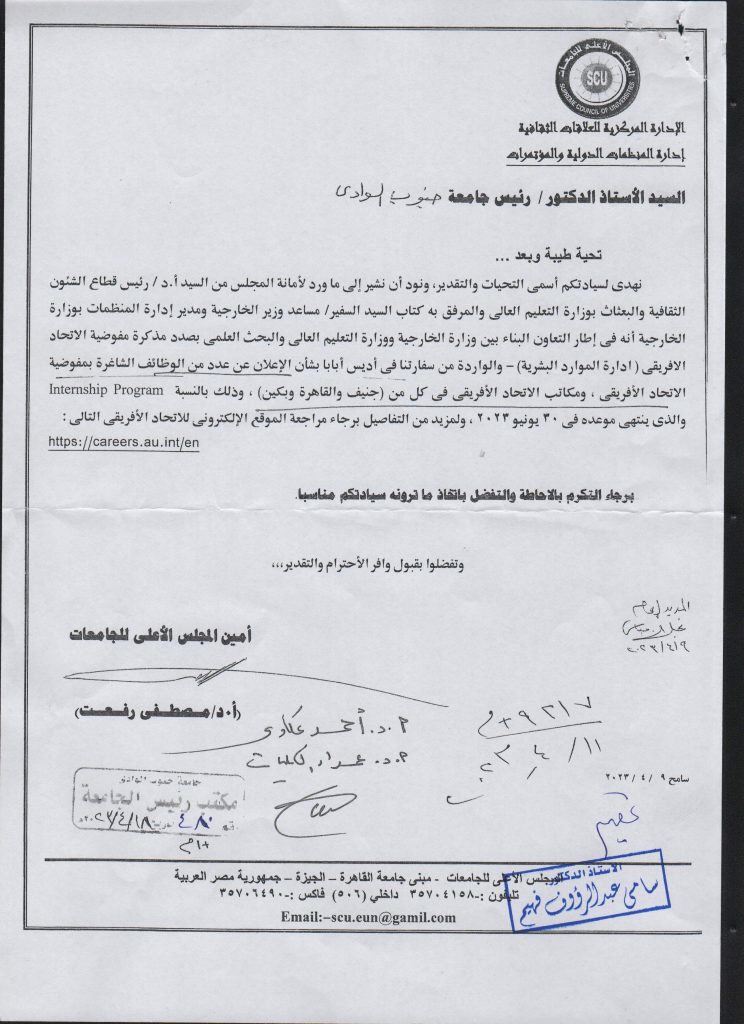 المجلس الأعلى للجامعات
SCU
SUPREME COUNCIL OF UNIVERSITIES
الإدارة المركزية للعلاقات الثقافية
إدارة المنظمات الدولية والمؤتمرات
السيد الأستاذ الدكتور / رئيس جامعة جنوب الوادى
تحية طيبة وبعد ...
نهدى لسيادتكم أسمى التحيات والتقدير، ونود أن نشير إلى ما ورد لأمانة المجلس من السيد أ.د / رئيس قطاع الشئون
الثقافية والبعثات بوزارة التعليم العالى والمرفق به كتاب السيد السفير/ مساعد وزير الخارجية ومدير إدارة المنظمات بوزارة
الخارجية أنه فى إطار التعاون البناء بين وزارة الخارجية ووزارة التعليم العالى والبحث العلمى بصدد مذكرة مفوضية الاتحاد
الافريقى ( ادارة الموارد البشرية) – والواردة من سفارتنا فى أديس أبابا بشأن الإعلان عن عدد من الوظائف الشاغرة بمفوضية
الاتحاد الأفريقى ، ومكاتب الاتحاد الأفريقى فى كل من (جنيف والقاهرة وبكين) ، وذلك بالنسبة Internship Program
والذى ينتهى موعده فى ٣٠ يونيو ٢٠٢٣ ، ولمزيد من التفاصيل برجاء مراجعة الموقع الإلكترونى للاتحاد الأفريقى التالى :
https://careers.au.int/en
برجاء التكرم بالاحاطة والتفضل باتخاذ ما ترونه سيادتكم مناسبا.
وتفضلوا بقبول وافر الأحترام والتقدير،،،
٢٠٢٣/٤/٩
أمين المجلس الأعلى للجامعات
(أ.د/مصطفى رفعت)
أ.د. أحمد عكاوى
أ.د. عمداء الكليات
٩٢١٧
١١/٤/٢٣
سامح ٩ / ٤ / ٢٠٢٣
جامعة جنوب الوادى
مكتب رئيس الجامعة
الأستاذ الدكتور
سامى عبد الرؤوف فهيم
المجلس الأعلى للجامعات - مبنى جامعة القاهرة – الجيزة – جمهورية مصر العربية
تليفون :-٣٥٧٠٤١٥٨ داخلي (٥٠٦) فاكس :-٣٥٧٠٦٤٩٠
Email:–scu.eun@gamil.com